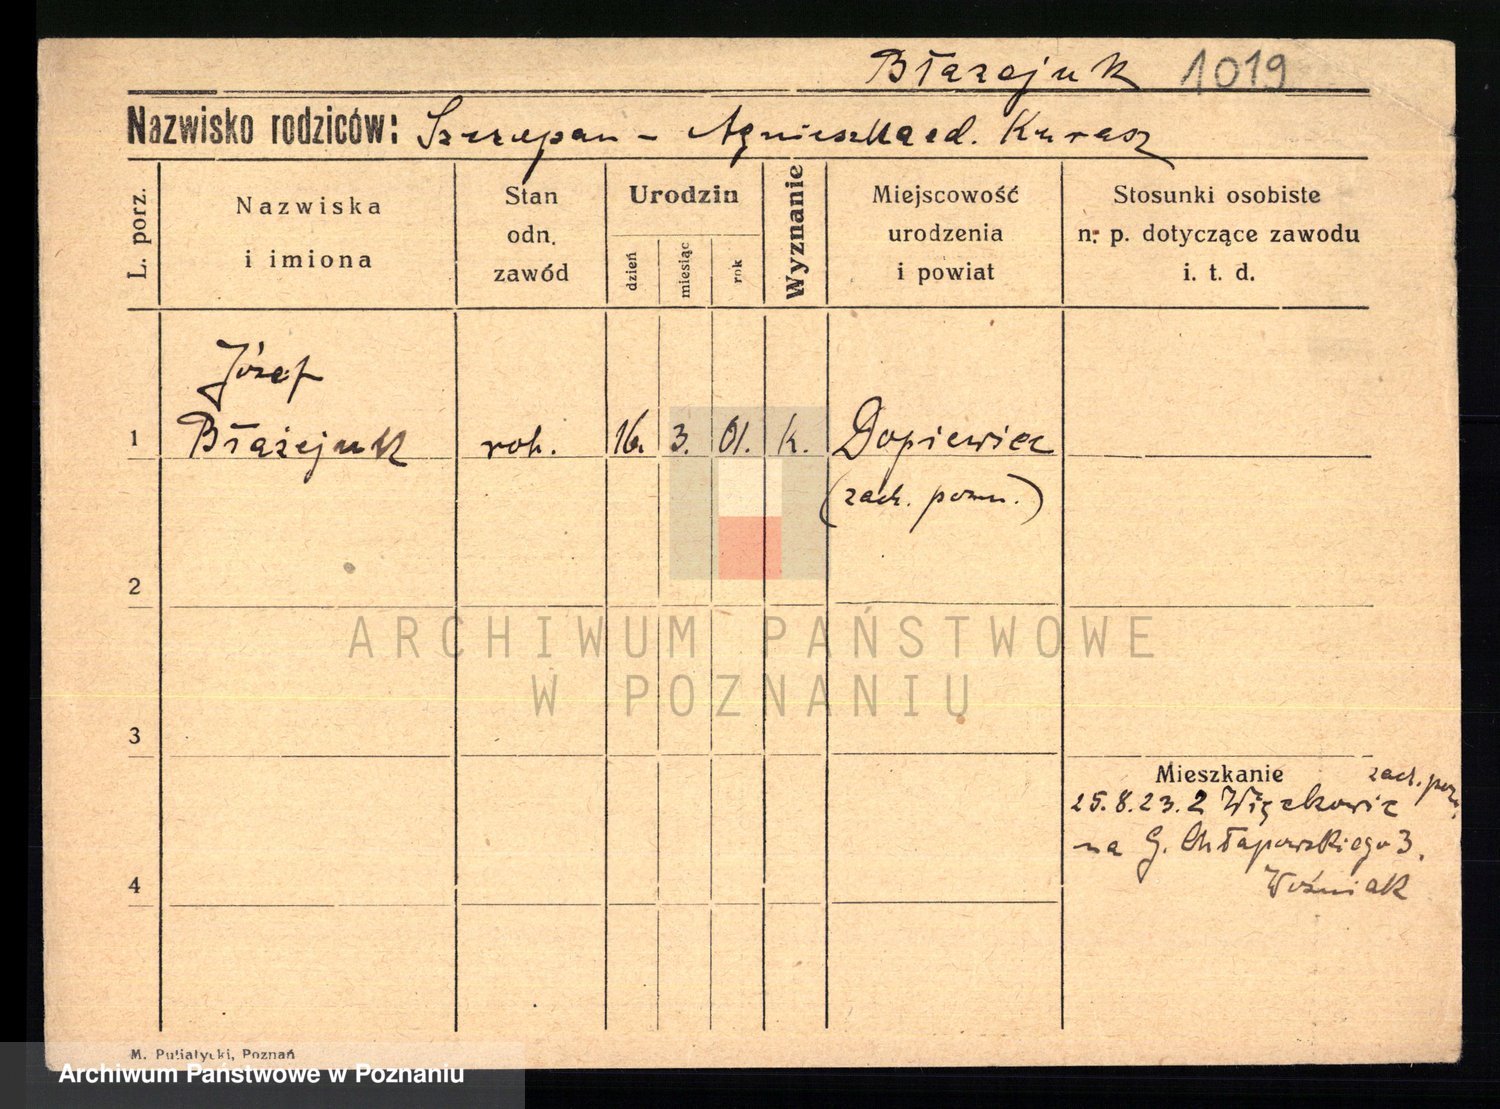 Błazejuk 1019
Nazwisko rodziców: Szczepan – Agnieszka zd. Kurasz
L. porz.
Nazwiska
i imiona
Stan
odn.
zawód
Urodzin
dzień
miesiąc
rok
Wyznanie
Miejscowość
urodzenia
i powiat
Stosunki osobiste
n. p. dotyczące zawodu
i. t. d.
Józef
1 Błażejuk rob. 16. 3. 01. k. Dopiewiec
(zach. pozn.)
2
ARCHIWUM PAŃSTWOWE
W POZNANIU
3
Mieszkanie zach. pozn.
25.8.23. z Więckowic
na G. Chłapowskiego 3.
Woźniak
4
M. Putiatycki, Poznań
Archiwum Państwowe w Poznaniu